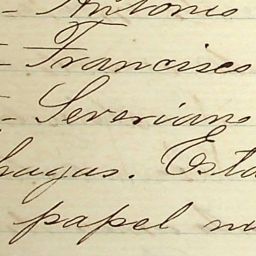 - Antonio
= Francisco
- Severiano
hagas. Esta
papel